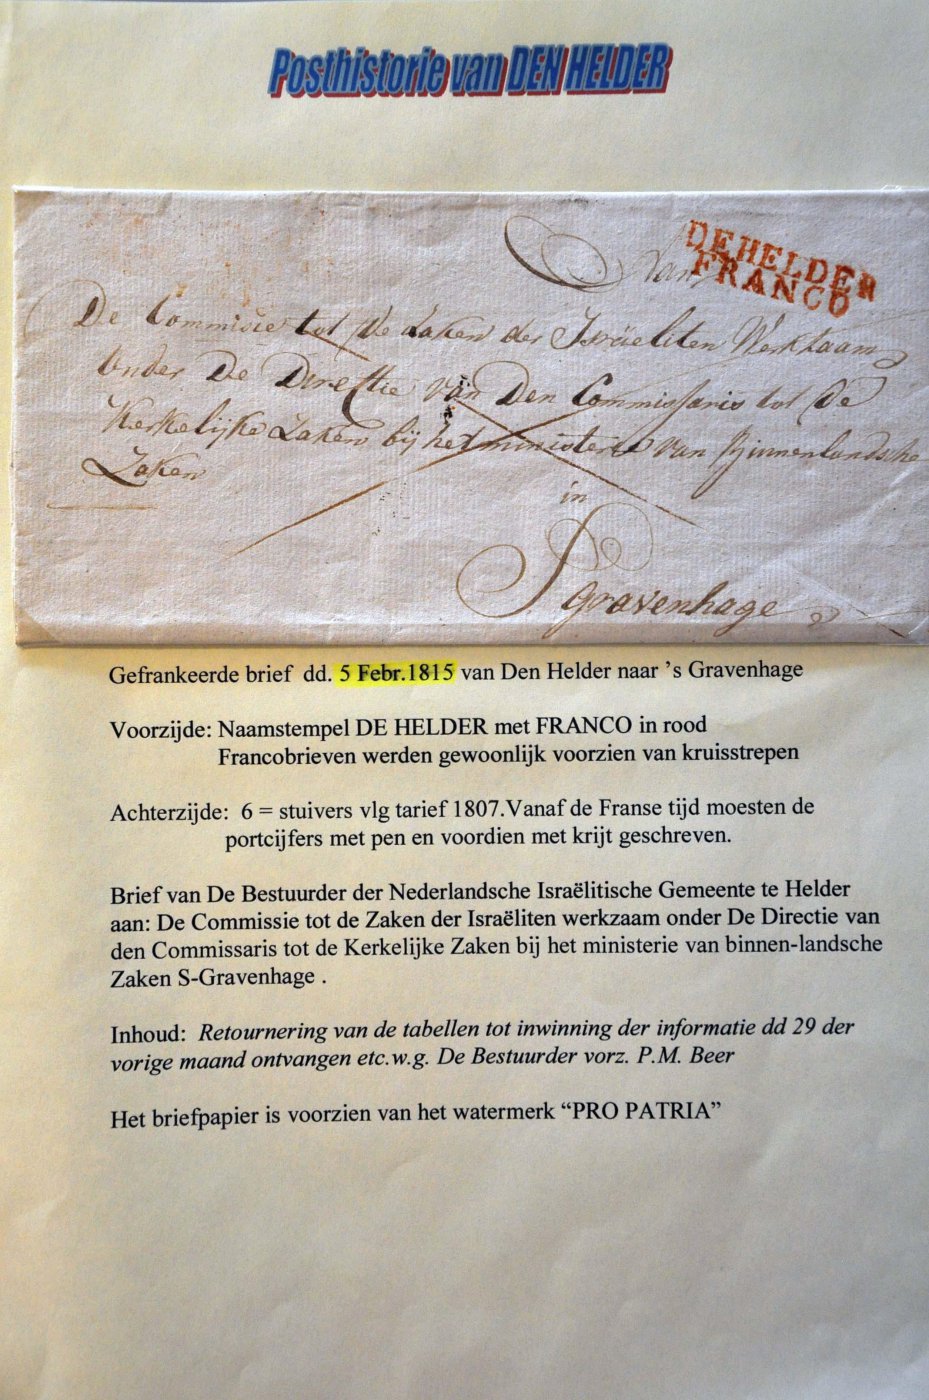 Posthistorie van DEN HELDER
DE HELDER
FRANCO
Van
De Commissie tot de Zaken der Israëliten Werkzaam
Onder De Directie van Den Commissaris tot De
Kerkelijke Zaken bij het ministerie van Binnenlandsche
Zaken
in
S gravenhage
Gefrankeerde brief dd. 5 Febr.1815 van Den Helder naar ’s Gravenhage
Voorzijde: Naamstempel DE HELDER met FRANCO in rood
Francobrieven werden gewoonlijk voorzien van kruisstrepen
Achterzijde: 6 = stuivers vlg tarief 1807.Vanaf de Franse tijd moesten de
portcijfers met pen en voordien met krijt geschreven.
Brief van De Bestuurder der Nederlandsche Israëlitische Gemeente te Helder
aan: De Commissie tot de Zaken der Israëliten werkzaam onder De Directie van
den Commissaris tot de Kerkelijke Zaken bij het ministerie van binnen-landsche
Zaken S-Gravenhage .
Inhoud: Retournering van de tabellen tot inwinning der informatie dd 29 der
vorige maand ontvangen etc.w.g. De Bestuurder vorz. P.M. Beer
Het briefpapier is voorzien van het watermerk “PRO PATRIA”